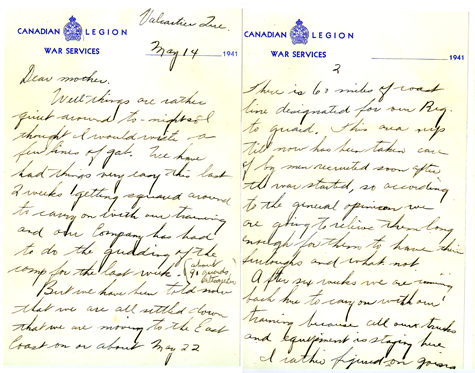 Valcartier Que.
CANADIAN LEGION
WAR SERVICES
May 14 1941
Dear mother.
Well things are rather
quiet around to-night so I
thought I would write a
few lines of gab. I've have
had things very easy this last
2 weeks getting squared around
to carry on with our training
and our Company has had
to do the guarding of the
camp for the last week. (about
91 guards
altogether)
But we have been told now
that we are all settled down
that we are moving to the East
Coast on or about May 22
CANADIAN LEGION
WAR SERVICES
1941
2
There is 60 miles of coast
line designated for our Reg.
to guard, this area up
till now has been taken care
of by men recruited soon after
the war started, so according
to the general opinion we
are going to relieve them long
enough for them to have their
furloughs and what not
After six weeks we are coming
back here to carry on with our
training because all our trucks
and equipment is staying here
I rather figured on going